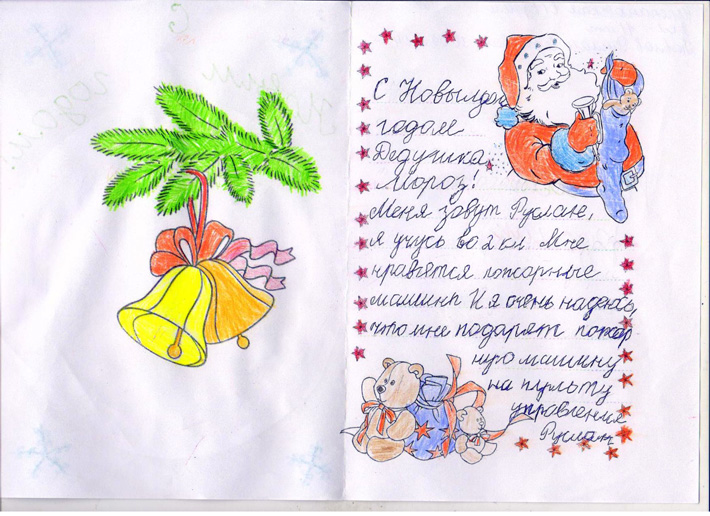 С Новым
годом
Дедушка
Мороз!
Меня зовут Руслан,
я учусь во 2 кл. Мне
нравятся пожарные
машины И я очень надеюсь,
что мне подарят пожар
ную машину
на пульту
управления
Руслан